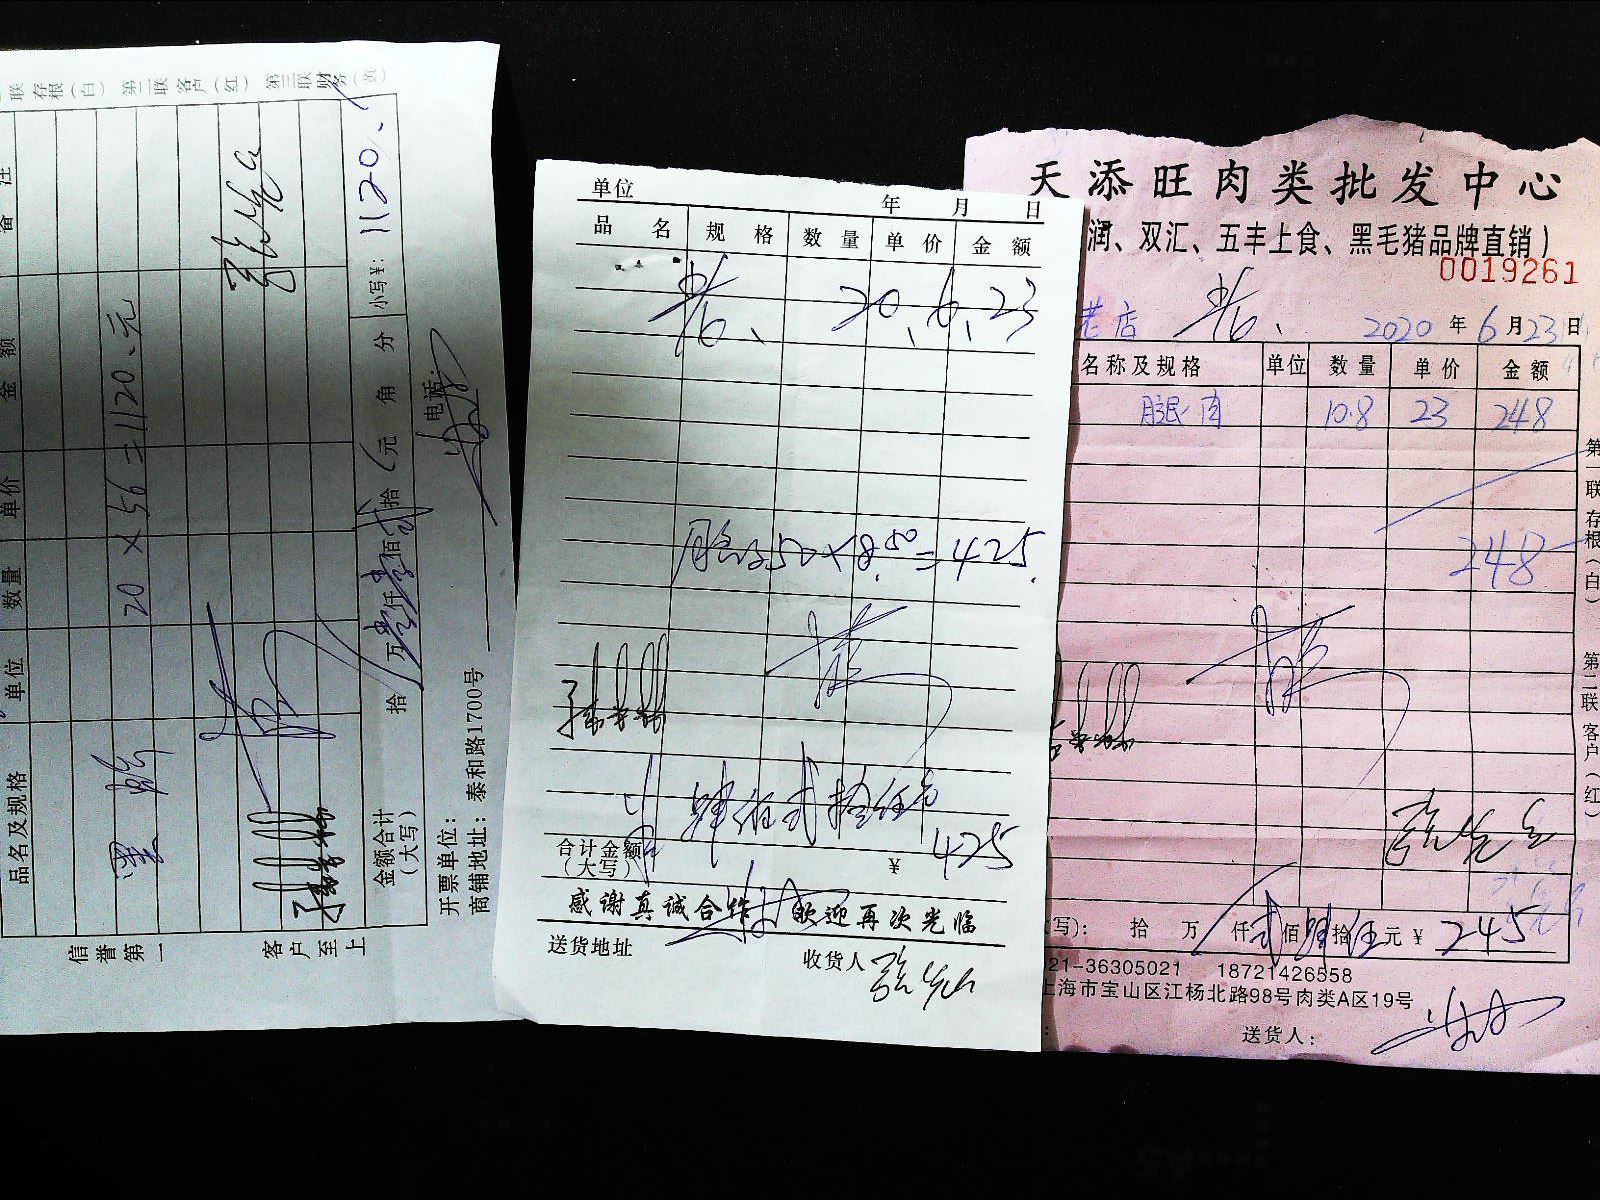 联 存根(白) 第二联 客户(红) 第三联 财务(黄)
品名及规格 单位 数量 单价 金额 备注
20 × 56 = 1120.元
金额合计(大写) 拾 万 壹 仟 壹 佰 贰 拾 元 角 分 小写¥: 1120.
开票单位: 电话:
商铺地址: 泰和路1700号
信誉第一 客户至上
单位 年 月 日
品名 规格 数量 单价 金额
20.6.23
50×8.50=425.
肆佰贰拾伍元
合计金额(大写) ¥ 425
感谢真诚合作 欢迎再次光临
送货地址 收货人
天添旺肉类批发中心
润、双汇、五丰上食、黑毛猪品牌直销)
0019261
老店 2020年6月23日
名称及规格 单位 数量 单价 金额
腿肉 10.8 23 248
248
第一联存根(白) 第二联客户(红)
写): 拾 万 仟 贰佰 肆拾 伍元 ¥ 245
21-36305021 18721426558
上海市宝山区江杨北路98号肉类A区19号
送货人: